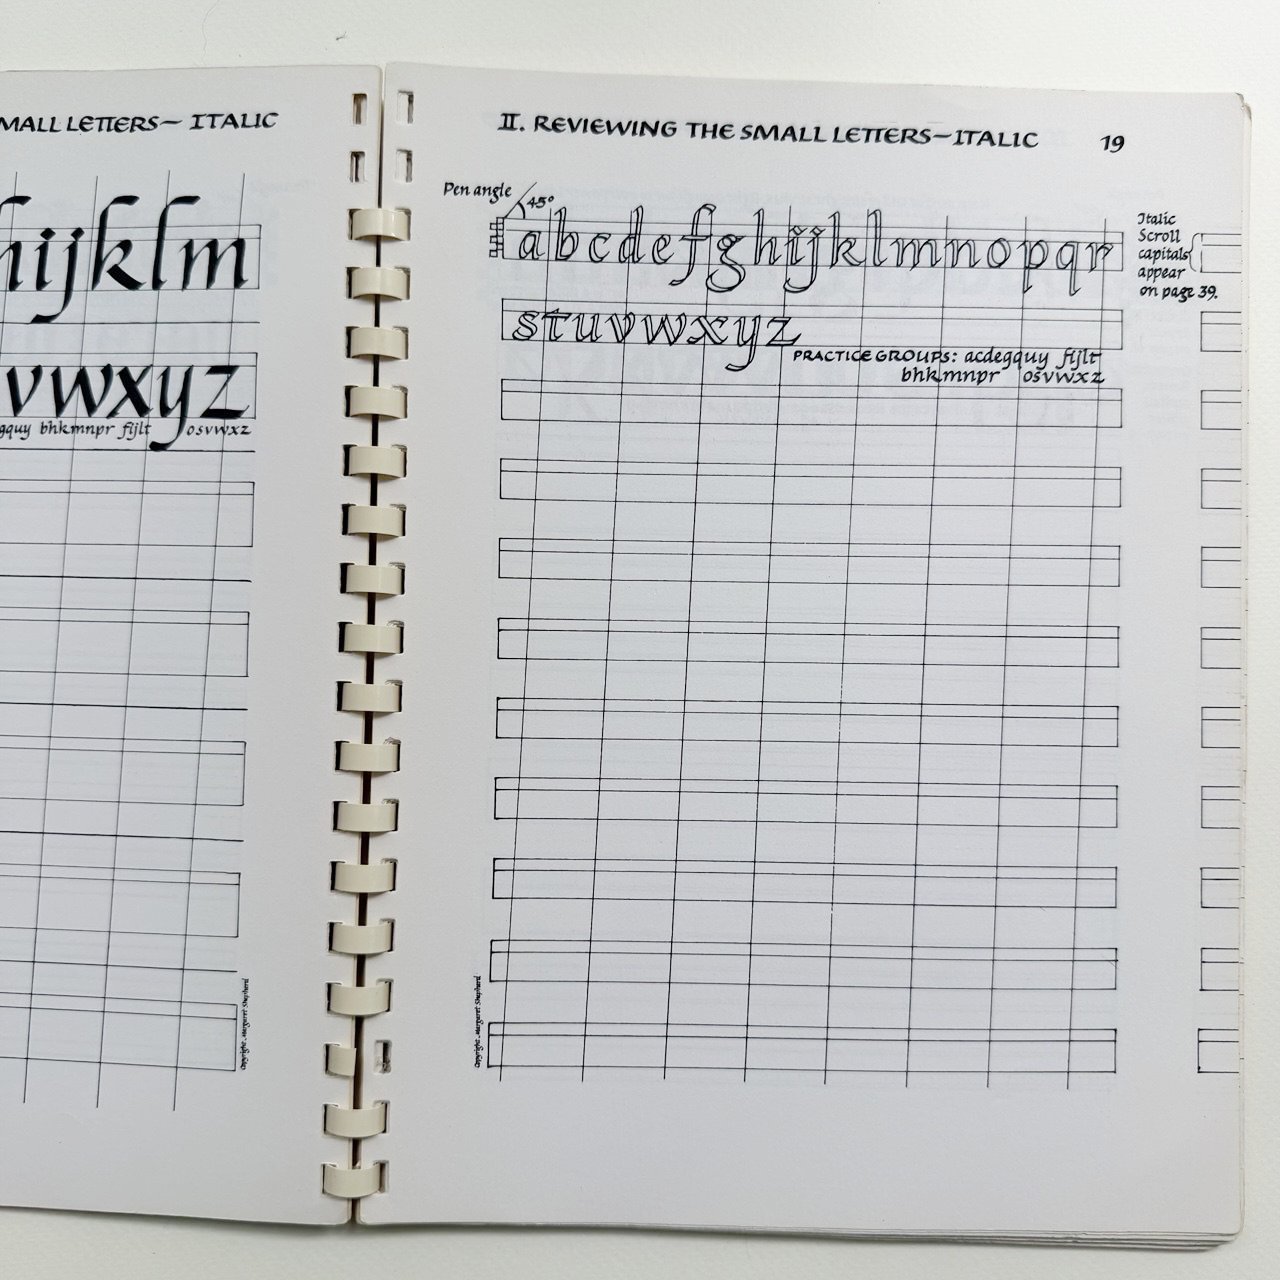 MALL LETTERS— ITALIC
hijklm
vwxyz
gquy bhkmnpr fijlt osvwxz
Copyright, Margaret Shepherd
II. REVIEWING THE SMALL LETTERS—ITALIC 19
Pen angle 45°
abcdefghijklmnopqr
Italic
Scroll
capitals
appear
on page 39.
stuvwxyz
PRACTICE GROUPS: acdegquy fijlt
bhkmnpr osvwxz
Copyright, Margaret Shepherd